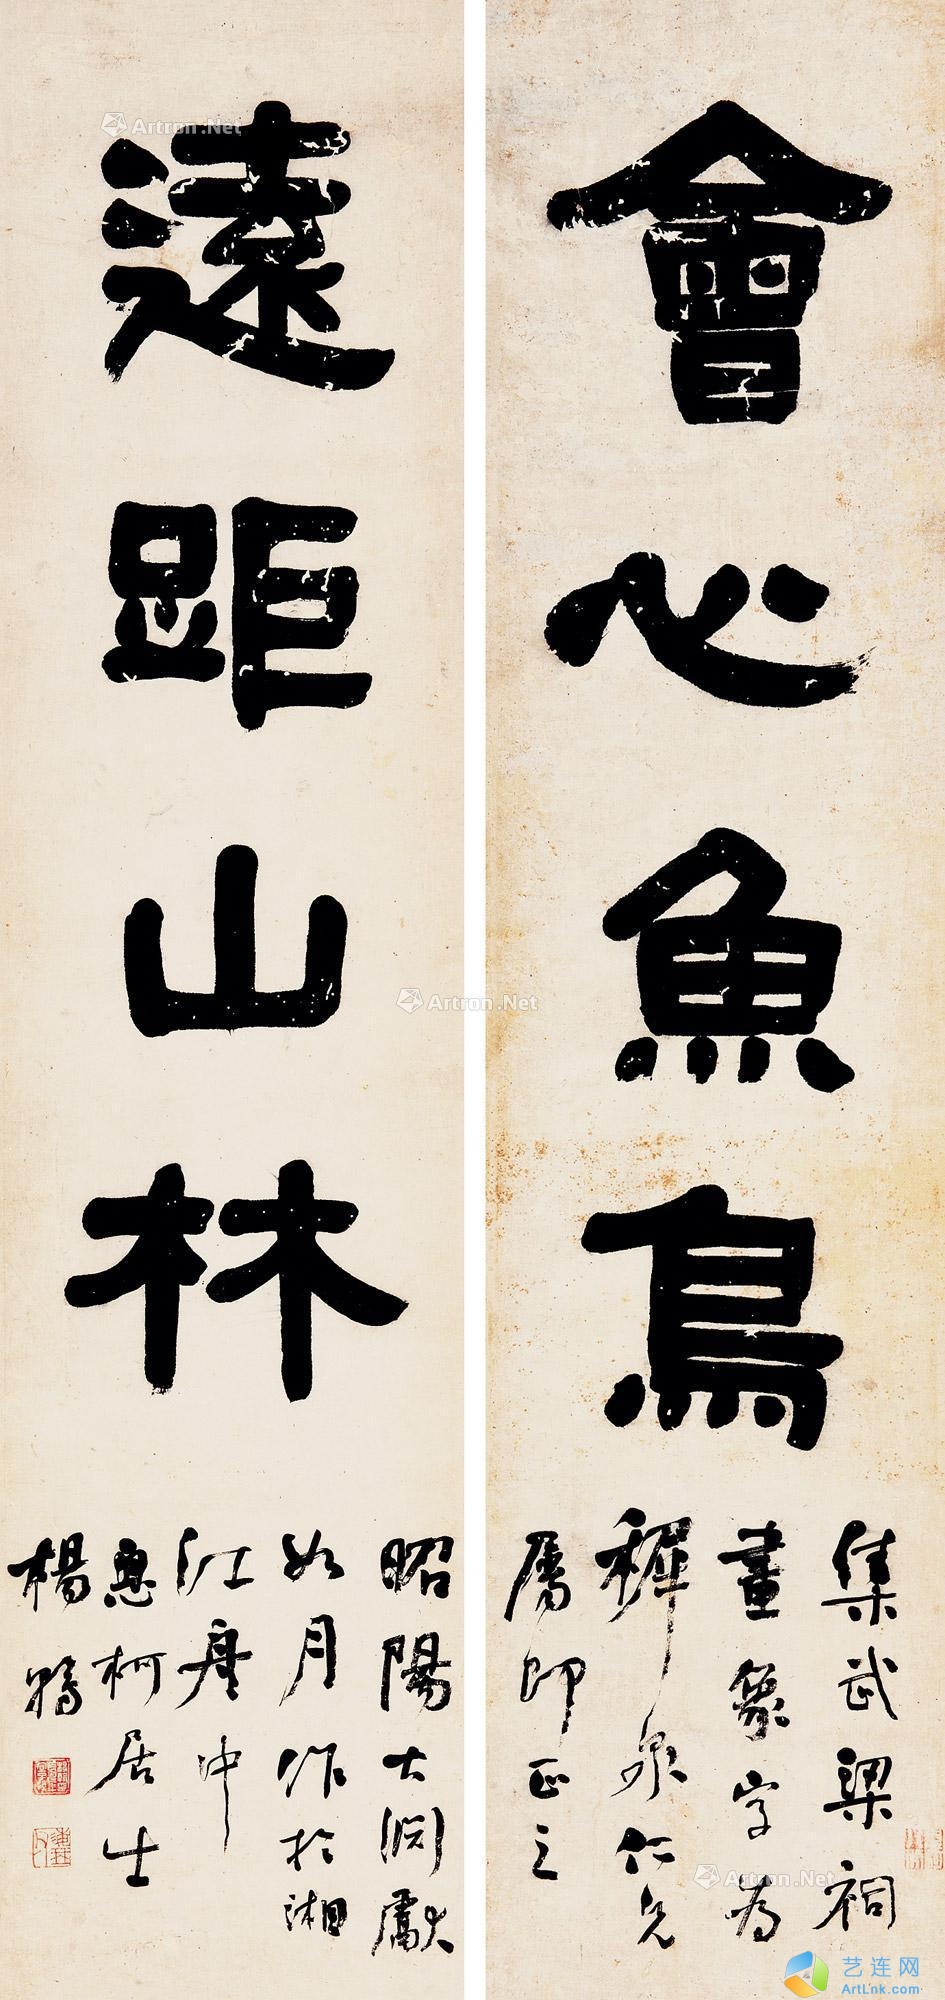 會心魚鳥
集武梁祠
畫象字為
穉泉仁兄
屬即正之
遠距山林
昭陽大淵獻
如月作於湘
江舟中
息柯居士
楊翰
Artron.Net
Artron.Net
Artron.Net
艺连网
ArtLnk.com